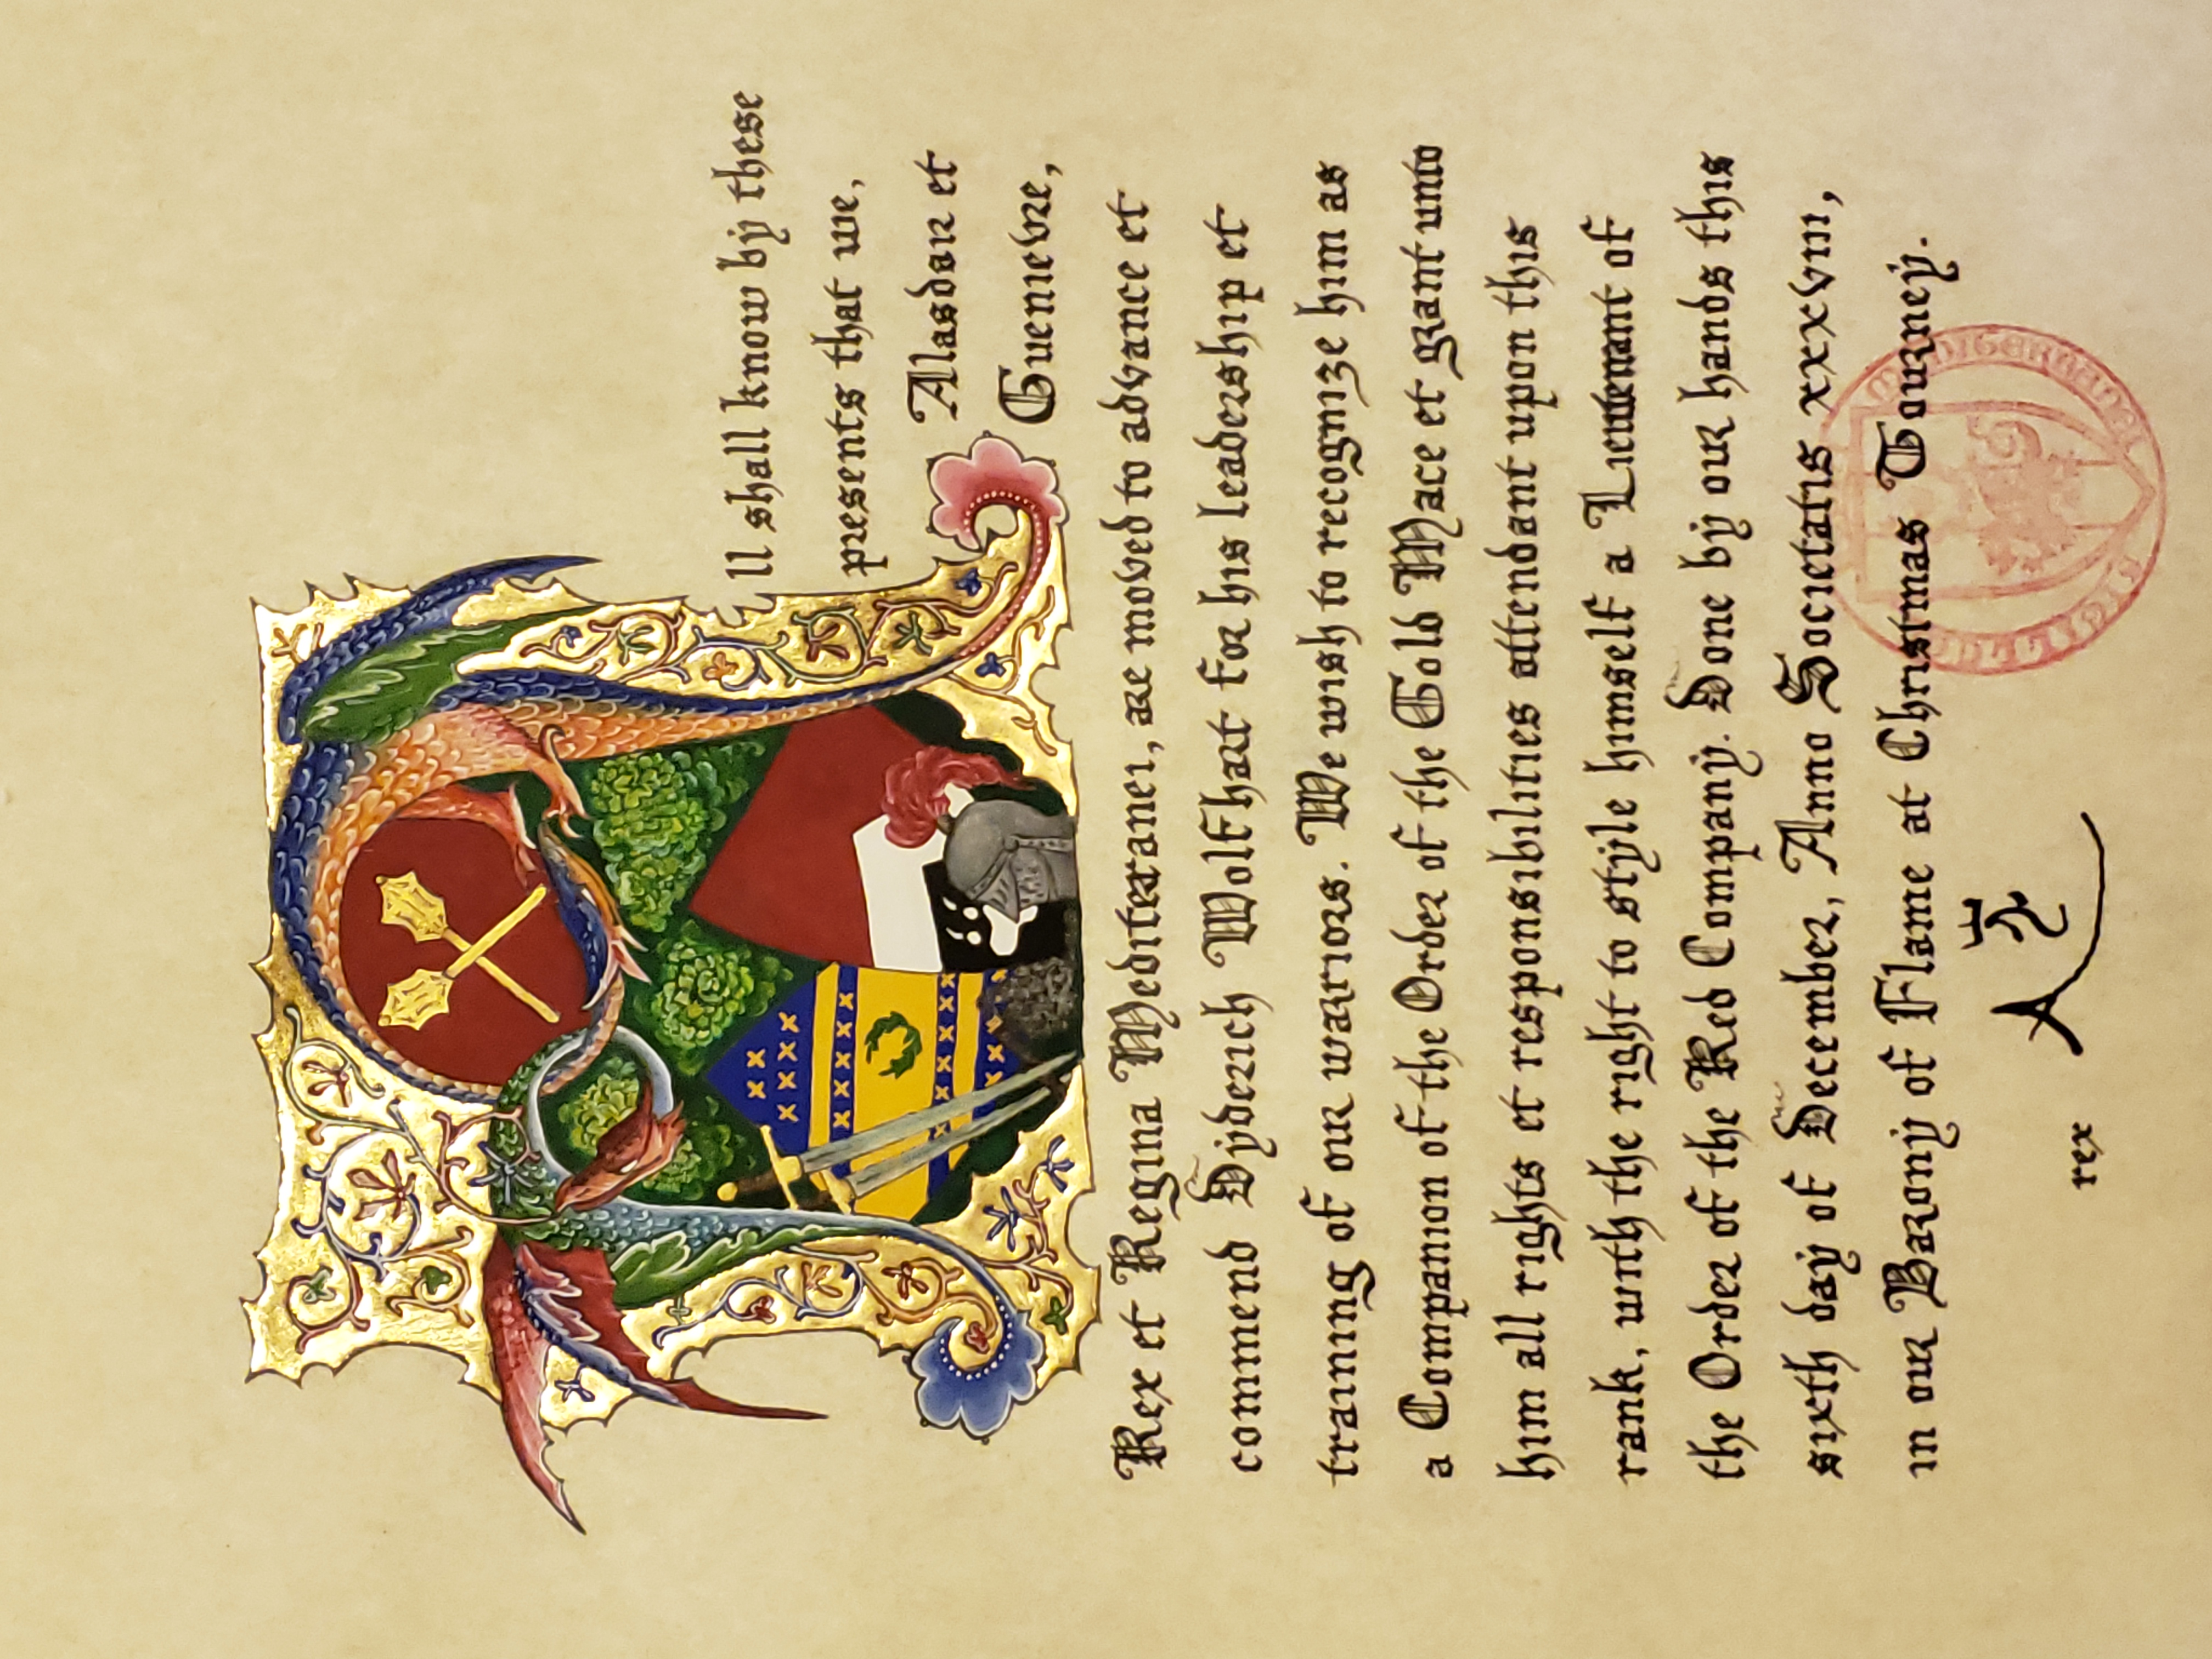 ll shall know by these
presents that we,
Alasdar et
Guenievre,
Rex et Regina Mediterranei, are moved to advance et
commend Dyderich Wolfhart for his leadership et
training of our warriors. We wish to recognize him as
a Companion of the Order of the Gold Mace et grant unto
him all rights et responsibilities attendant upon this
rank, with the right to style himself a Lieutenant of
the Order of the Red Company. Done by our hands this
sixth day of December, Anno Societatis xxxviii,
in our Barony of Flame at Christmas Tourney.
rex